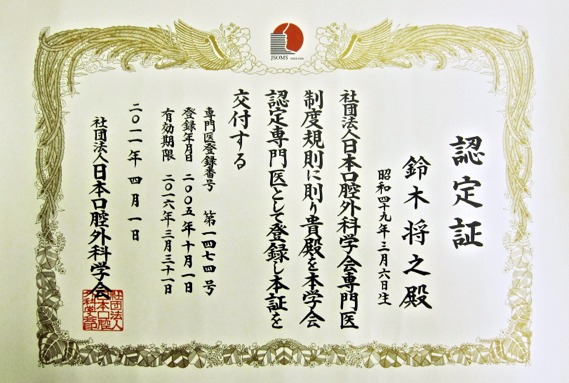 JSOMS
認定証
鈴木将之殿
昭和四十九年三月六日生
社団法人日本口腔外科学会専門医
制度規則に則り貴殿を本学会
認定専門医として登録し本証を
交付する
専門医登録番号 第一四七四号
登録年月日 二〇〇五年十月一日
有効期限 二〇一六年三月三十一日
二〇一一年四月一日
社団法人日本口腔外科学会